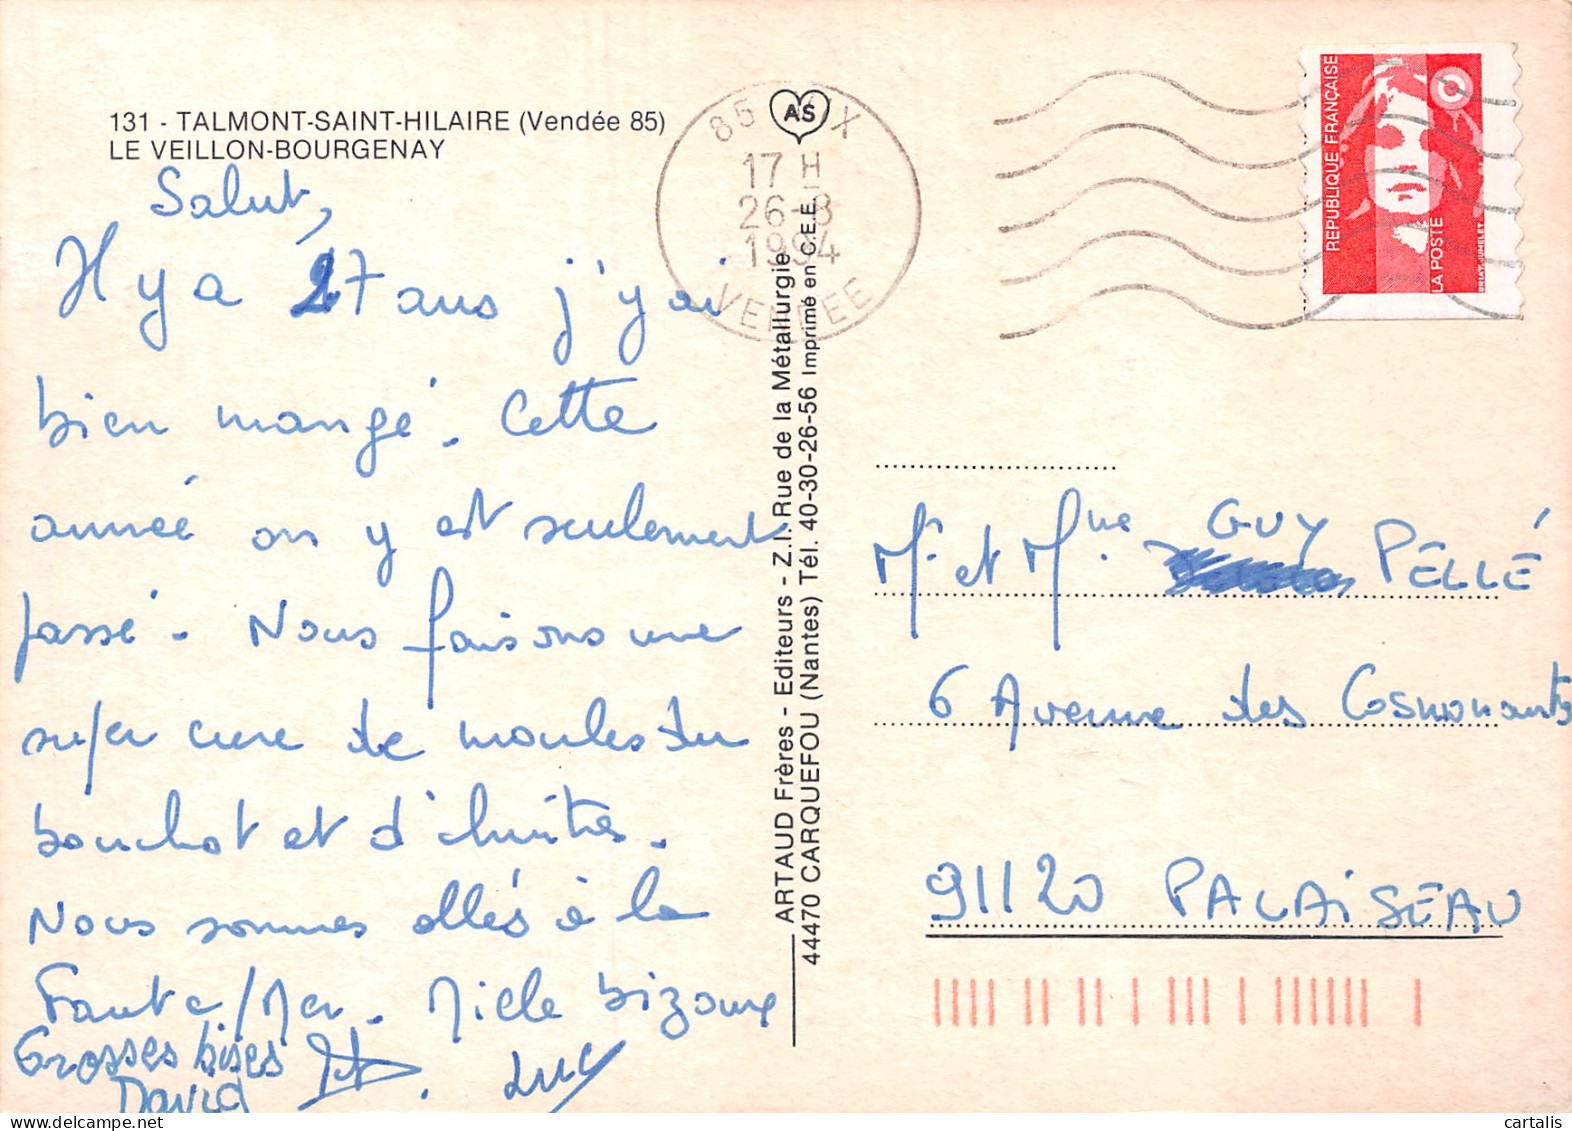 131 - TALMONT-SAINT-HILAIRE (Vendée 85)
LE VEILLON-BOURGENAY
Salut,
Il y a 27 ans j'y ai
bien mangé. Cette
année on y est seulement
passé. Nous faisons une
super cure de moules du
bouchot et d'huitres.
Nous sommes allés à la
Faute/Mer. Mille bizoux
Grosses bises
David
Luc
ARTAUD Frères - Editeurs - Z.I. Rue de la Métallurgie
44470 CARQUEFOU (Nantes) Tél. 40-30-26-56 Imprimé en C.E.E.
AS
85
17 H
26-8
1994
VENDEE
REPUBLIQUE FRANÇAISE
LA POSTE
BRIAT-JUMELET
Mr et Mme GUY PELLÉ
6 Avenue des Cosmonautes
91120 PALAiSEAU
cartalis